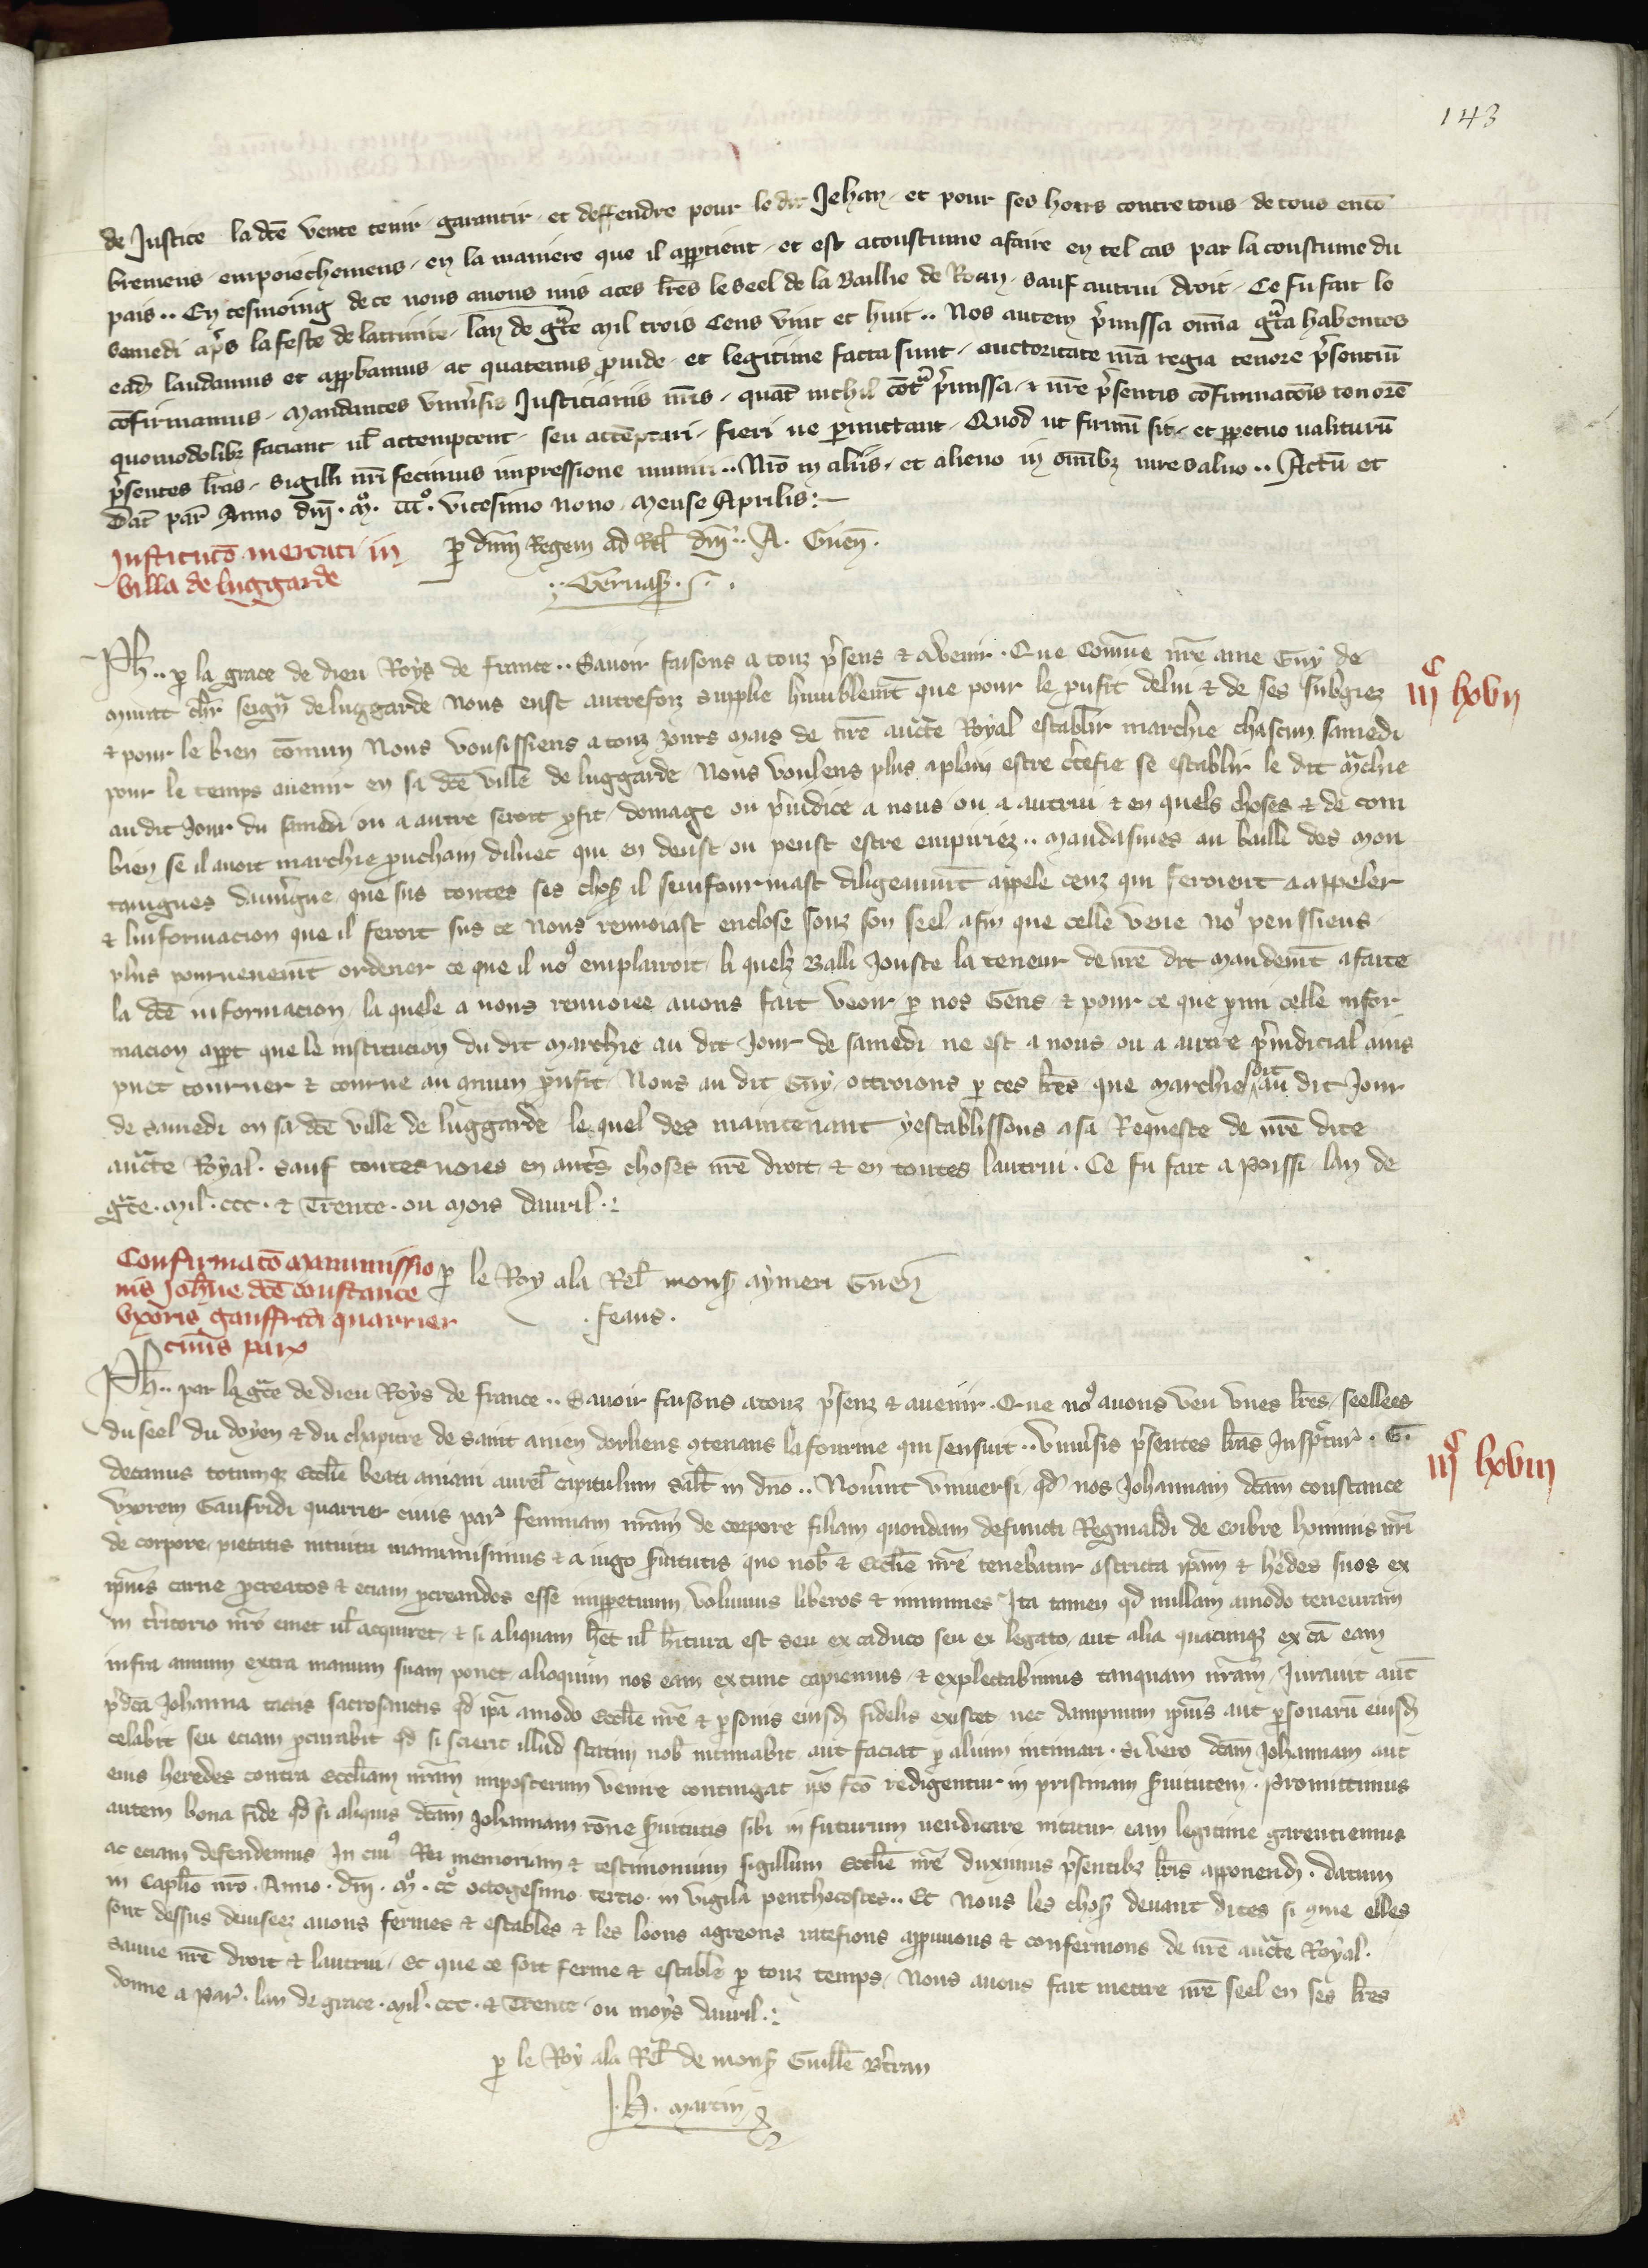 143
de Justice la dce vente tenir garantir et deffendre pour le dit Jehan et pour ses hoirs contre tous de tous enco
bremens empoiechemens en la maniere que il apptient et est acoustume afaire en tel cas par la coustume du
pais .. En tesmoing de ce nous avons mis a ces lres le seel de la Baillie de Roan sauf autrui droit Ce fu fait le
semedi aps la feste de la trinite lan de gce mil trois Cens vint et huit .. Nos autem pmissa omia gta habentes
ead laudamus et appbamus ac quatenus provide et legitime facta sunt auctoritate nra regia tenore psentiu
cofirmamus Mandantes universis Justiciariis nris quat nichil cotra pmissa et nre psentis cofirmacois tenore
quomodolibet faciant vl attemptent seu attemptari fieri ve pmittant Quod ut firmu sit et ppetuo valituru
psentes lras sigilli nri fecimus impressione muniri .. Nro in aliis et alieno in omibz iure salvo .. Actu et
Dat par Anno dni . mo . ccco . vicesimo nono Mense Aprilis :
Institucio mercati in
villa de luggarde
p dnm Regem ad Rel dni .. A. Guen .
.. Gervas . S .
Ph .. p la grace de dieu Roys de france .. Savoir faisons a touz psens & avenir . Que Comme nre ame Guy de
Murat chr seigr de luggarde Nous eust autrefoiz supplie humblemt que pour le proufit de lui & de ses subgiez
& pour le bien comun Nous vousissiens a touz jours mais de nre aucte Royal establir marchie chascun samedi
pour le temps avenir en sa dce ville de luggarde Nous voulens plus a plain estre ctefie se establir le dit mchie
au dit Jour du samedi ou a autre seroit profit domage ou pjudice a nous ou a autrui & en quels choses & de com
bien se il avoit marchie prucham dilluec qui en deust ou peust estre empiriez .. Mandasmes au bailli des Mon
taignes dauvergne que sus toutes ses chos il sunfourmast diligeaumt appele ceuz qui feroient a appeler
& linformacion que il feroit sus ce Nous renvoiast enclose souz son seel afin que celle veue no9 peussiens
plus pourveuemt ordener ce que il no9 emplairoit li quelz Balli Jouste la teneur de nre dit mandemt a faite
la dce informacion la quele a nous renvoiee avons fait veoir p nos Gens & pour ce que prmi celle infor
macion appt que le institucion du dit marchie au dit Jour de samedi ne est a nous ou a autre pjudicial ains
puet tourner & tourne au comun proufit Nous au dit Guy ottroions p ces lres que marchie soit au dit Jour
de samedi en sa dce ville de luggarde le quel des maintenant y establissons a sa Requeste de nre dite
aucte Royal . sauf toutes voies en autres choses nre droit & en toutes lautrui . Ce fu fait a Poissi lan de
gce . Mil . ccc . & Trente . ou mois davril . :
Confirmaco manumissio
nis Johne dce constance
uxoris gauffridi quarrier
civis par
p le Roy a la Rel mons aymeri Guen
. feaus .
iiiC lxvii
Ph .. par la gce de dieu Roys de france .. Savoir faisons a touz psenz & avenir . Que no9 avons veu unes lres seellees
du seel du doyen & du chapitre de saint anien dorliens contenans la fourme qui sensuit .. Universis psentes lras Inspcturis . G.
decanus totumqz ecclie beati aniani aurel capitulum salt in dno .. Noverint universi qd nos Johannam dcam constance
uxorem Gaufridi quarrier civis par feminam nram de corpore filiam quondam defuncti Reginaldi de coibre hominis nri
de corpore pietatis intuitu manumisimus & a iugo svitutis quo nob & ecclie nre tenebatur astricta ipam & hedes suos ex
ipius carne pcreatos & eciam pcreandos esse imppetuum volumus liberos & immunes Ita tamen qd nullam amodo teneuram
in tritorio nro emet vl acquiret & si aliquam het vl hitura est seu ex caduco seu ex legato aut alia quacunqz ex ca eam
infra annum extra manum suam ponet alioquin nos eam extunc capiemus & explectabimus tanquam nram Juravit aut
pdca Johanna tactis sacrosanctis qd ipa amodo ecclie nre & psonis eiusd fidelis existet nec dampnum ipius aut psonaru eiusd
celabit seu eciam pcurabit qd si scierit illud statim nob intimabit aut faciat p alium intimari . Si vero dcam Johannam aut
eius heredes contra eccliam nram imposterum venire contingat ipo fco redigentur in pristinam svitutem . Promittimus
autem bona fide qd si aliquis dcam Johannam rone svitutis sibi in futurum vendicare nitatur eam legitime garentiemus
ac eciam defendemus In cui9 Rei memoriam & testimonium sigillum ecclie nre duximus psentibz lris apponend . datum
in caplo nro . Anno . dni . mo . cco octogesimo tercio . in vigilia penthecostes .. Et Nous les chos devant dites si come elles
sont dessus deviseez avons fermes & estables & les loons agreons ratefions appruvons & confermons de nre aucte Royal .
Sauve nre droit & lautrui . Et que ce soit ferme & estable p touz temps Nous avons fait mettre nre seel en ses lres
donne a Par . lan de grace . Mil . ccc . & Trente ou moys davril . :
iiiC lxviii
p le Roy a la Rel de mons Guille Btran
J . H . Martin